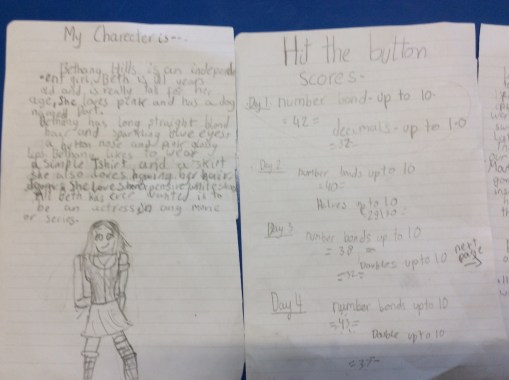 My Charecter is....
Bethany Hills is an independ
ent girl, Beth is 11 years
old and is really tall for her
age, She loves pink and has a dog
named
Bethany has long straight blond
hair and sparkling blue eyes
a button nose and pale
lips Bethany likes to wear
a simple Tshirt and a skirt
she also loves having her hair
down. She loves
All Beth has ever wanted is to
be an actress in any movie
or series.
Hit the button
scores-
Day 1 number bond- up to 10-
= 42 =
decimals- up to 1.0
= 38=
Day 2 number bonds up to 10
=40=
Halves up to 10
Day 3 number bonds up to 10
= 38 =
Doubles up to 10
next page
Day 4 number bonds up to 10
=43=
Double up to 10